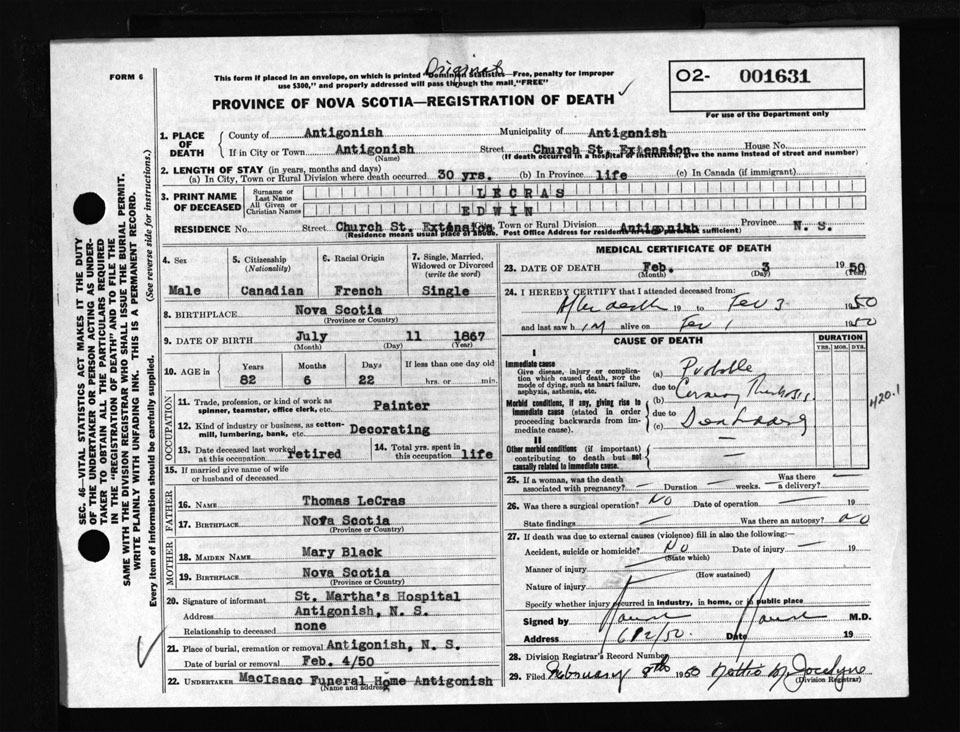 Original
FORM 6
This form if placed in an envelope, on which is printed "Dominion Statistics—Free, penalty for improper
use $300," and properly addressed will pass through the mail, "FREE"
O2- 001631
For use of the Department only
PROVINCE OF NOVA SCOTIA—REGISTRATION OF DEATH
1. PLACE OF DEATH
County of Antigonish Municipality of Antigonish
If in City or Town Antigonish Street Church St. Extension House No.
(Name) (If death occurred in a hospital or institution, give the name instead of street and number)
2. LENGTH OF STAY (in years, months and days)
(a) In City, Town or Rural Division where death occurred 30 yrs. (b) In Province life (c) In Canada (if immigrant)
3. PRINT NAME OF DECEASED
Surname or Last Name LECRAS
All Given or Christian Names EDWIN
RESIDENCE No. Street Church St. Extension Town or Rural Division Antigonish Province N. S.
(Residence means usual place of abode. Post Office Address for residents sufficient)
4. Sex Male
5. Citizenship (Nationality) Canadian
6. Racial Origin French
7. Single, Married, Widowed or Divorced (write the word) Single
8. BIRTHPLACE Nova Scotia
(Province or Country)
9. DATE OF BIRTH July 11 1867
(Month) (Day) (Year)
10. AGE in Years 82 Months 6 Days 22 If less than one day old hrs. or min.
OCCUPATION
11. Trade, profession, or kind of work as spinner, teamster, office clerk, etc. Painter
12. Kind of industry or business, as cotton-mill, lumbering, bank, etc. Decorating
13. Date deceased last worked at this occupation retired
14. Total yrs. spent in this occupation life
15. If married give name of wife or husband of deceased
FATHER
16. NAME Thomas LeCras
17. BIRTHPLACE Nova Scotia
(Province or Country)
MOTHER
18. MAIDEN NAME Mary Black
19. BIRTHPLACE Nova Scotia
(Province or Country)
20. Signature of informant St. Martha's Hospital
Address Antigonish, N. S.
Relationship to deceased none
21. Place of burial, cremation or removal Antigonish, N. S.
Date of burial or removal Feb. 4/50
22. UNDERTAKER MacIsaac Funeral Home Antigonish
(Name and address)
MEDICAL CERTIFICATE OF DEATH
23. DATE OF DEATH Feb. 3 1950
(Month) (Day) (Year)
24. I HEREBY CERTIFY that I attended deceased from:
After death 19 to Fev 3 1950
and last saw him alive on Fev 1 1950
CAUSE OF DEATH
DURATION
YRS. MOS. DYS.
I
Immediate cause
Give disease, injury or complication which caused death, not the mode of dying, such as heart failure, asphyxia, asthenia, etc.
(a) Probable
due to
(b) Coronary Thrombosis
Morbid conditions, if any, giving rise to immediate cause (stated in order proceeding backwards from immediate cause).
due to
(c)
420.1
II
Other morbid conditions (if important) contributing to death but not causally related to immediate cause.
25. If a woman, was the death associated with pregnancy? — Duration weeks. Was there a delivery?
26. Was there a surgical operation? NO Date of operation 19
State findings — Was there an autopsy? no
27. If death was due to external causes (violence) fill in also the following:—
Accident, suicide or homicide? No Date of injury — 19
(State which)
Manner of injury
(How sustained)
Nature of injury
Specify whether injury occurred in industry, in home, or in public place
Signed by M.D.
Address 6/2/50 Date 19
28. Division Registrar's Record Number
29. Filed February 8th 1950 Nettie M. Jocelyne
(Division Registrar)
SEC. 46—VITAL STATISTICS ACT MAKES IT THE DUTY
OF THE UNDERTAKER OR PERSON ACTING AS UNDER-
TAKER TO OBTAIN ALL THE PARTICULARS REQUIRED
IN THE "REGISTRATION OF DEATH" AND TO FILE THE
SAME WITH THE DIVISION REGISTRAR WHO SHALL ISSUE THE BURIAL PERMIT.
WRITE PLAINLY WITH UNFADING INK. THIS IS A PERMANENT RECORD.
Every item of information should be carefully supplied. (See reverse side for instructions.)